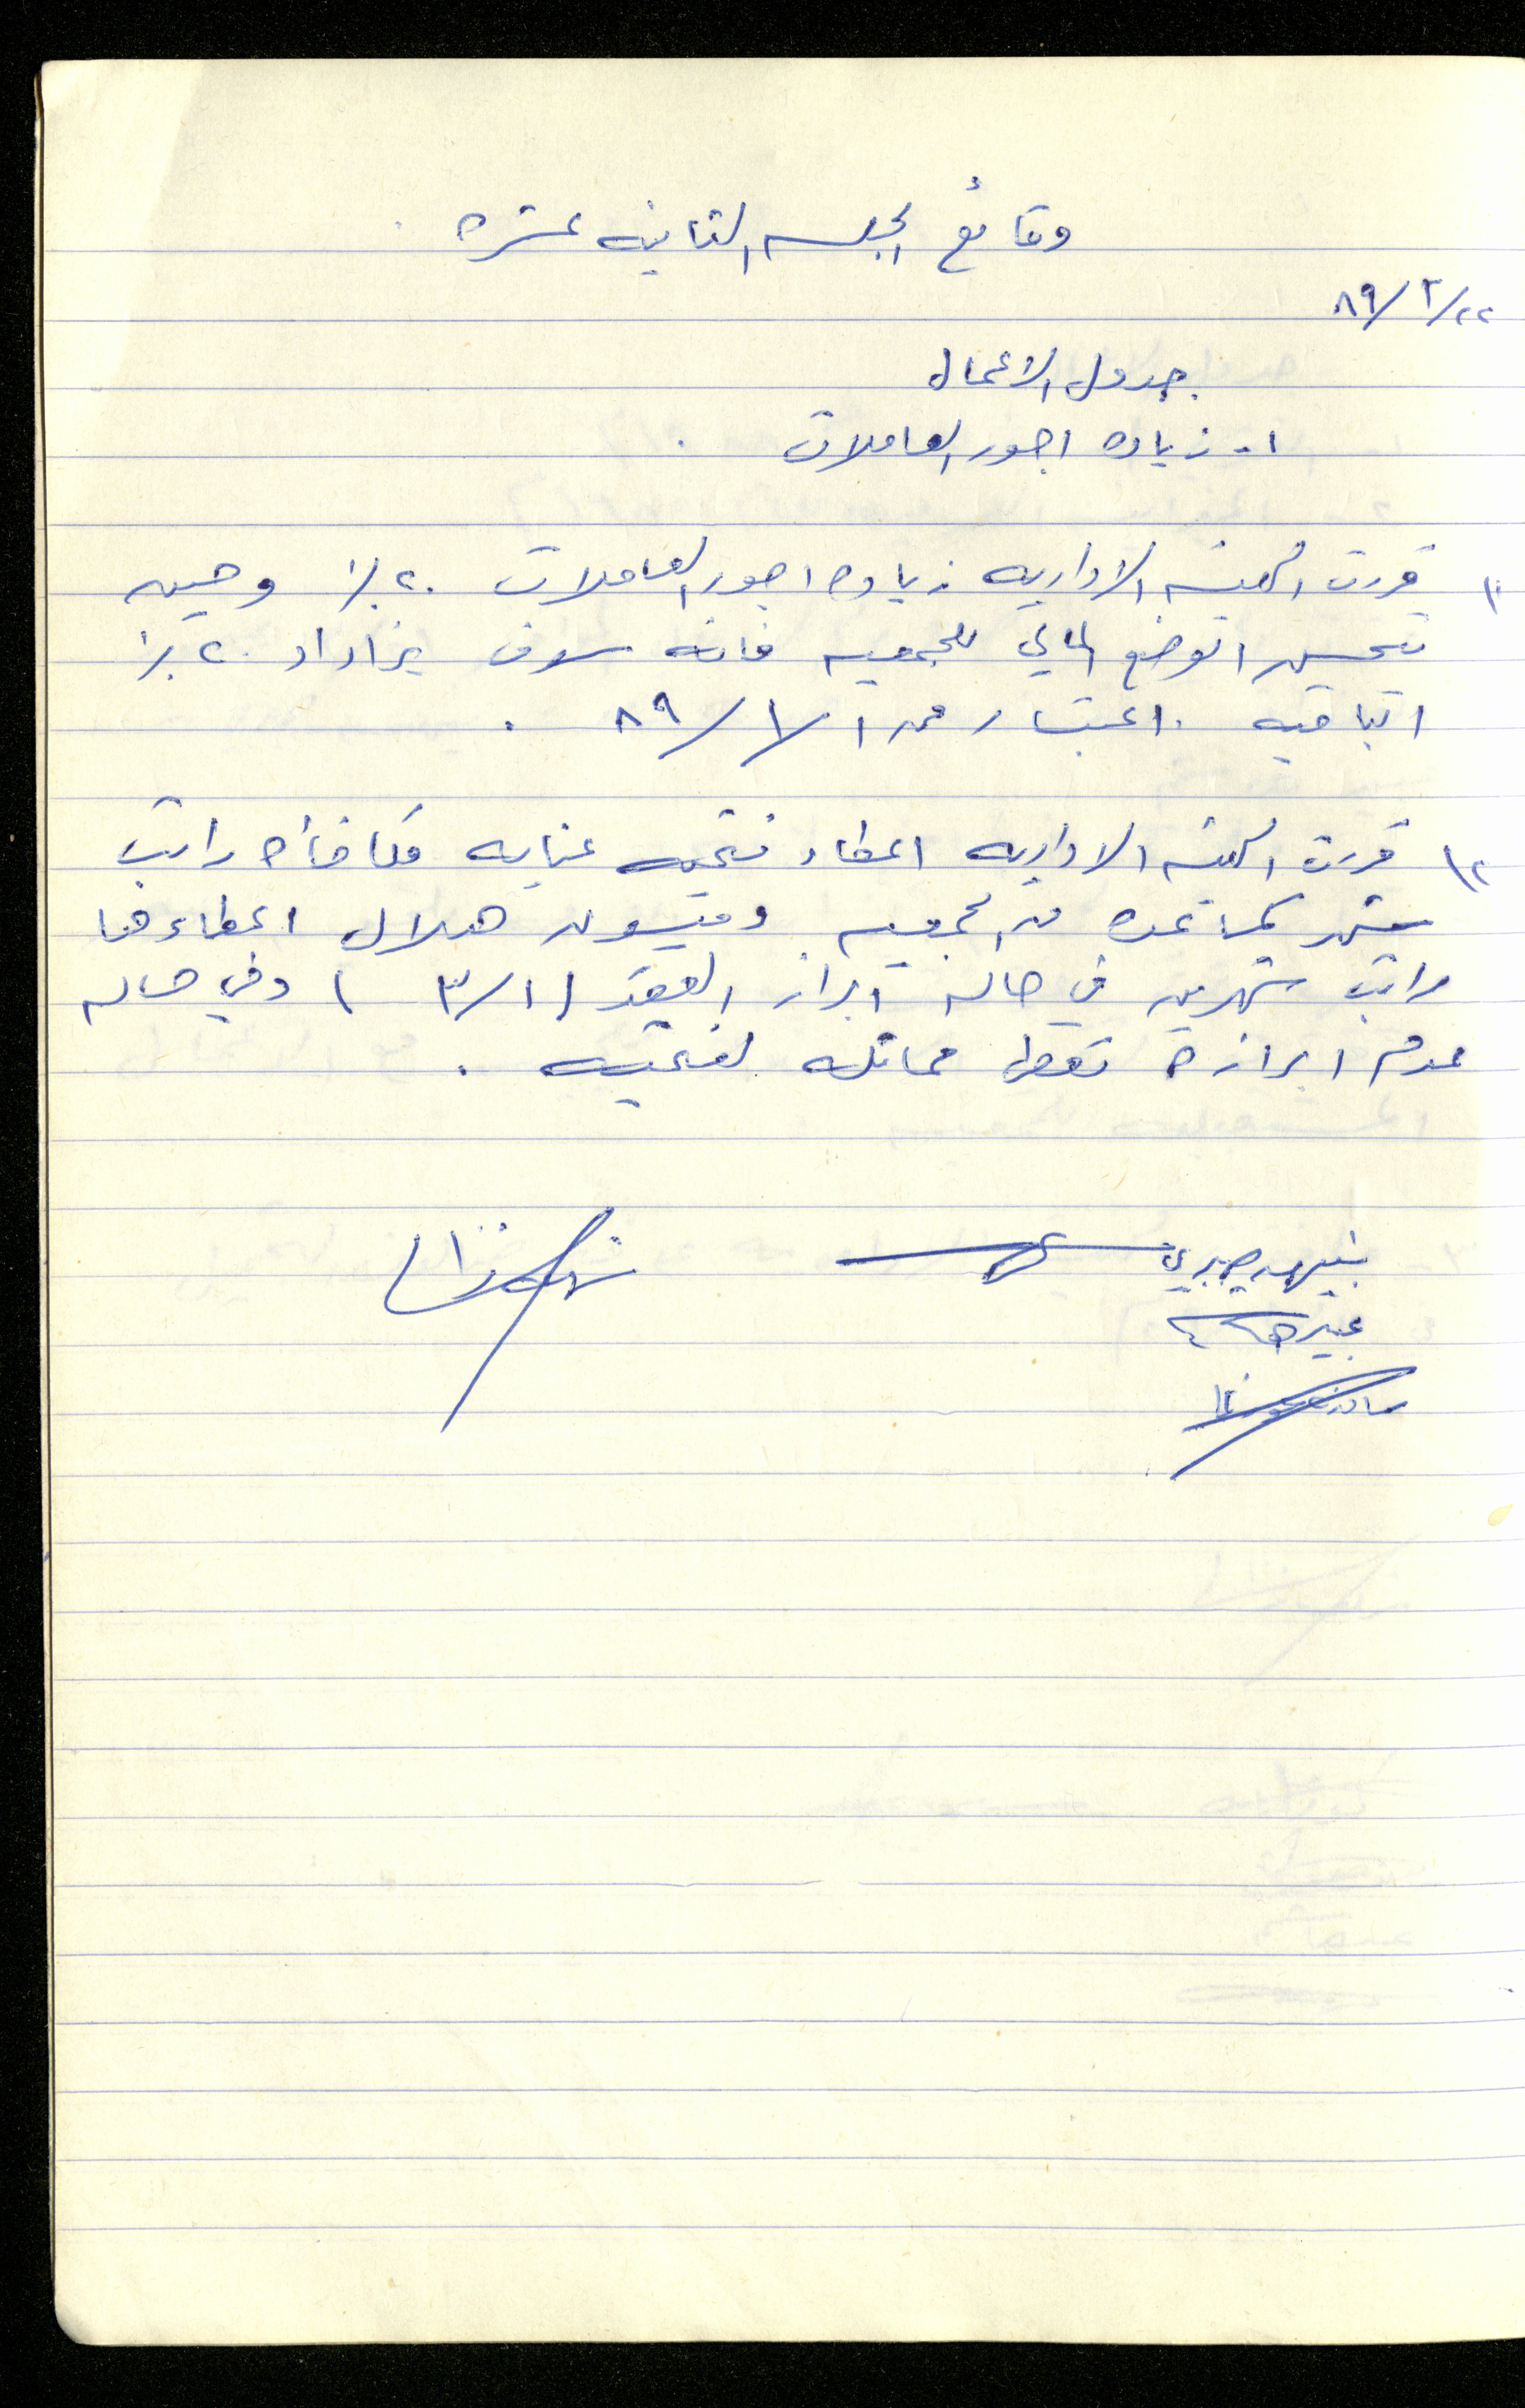 وقائع الجلسه الثانيه عشره
٢٢/٢/٨٩
جدول الاعمال
١- زياده اجور العاملات .
١) قررت الهيئه الاداريه زياده اجور العاملات ٢٠٪ وحين
يتحسن الوضع المالي للجمعيه فانه سوف يزاد ٢٠٪
الباقيه . اعتبار من ١/١/٨٩ .
٢) قررت الهيئه الاداريه اعطاء فتحيه عنايه مكافأه راتب
شهر كمساعده من الجمعيه وميسون هلال اعطاءها
راتب شهرين في حاله ابراز العقد (٣/١) وفي حاله
عدم ابرازه تعطى مماثله لفتحيه .
صبري
عبير